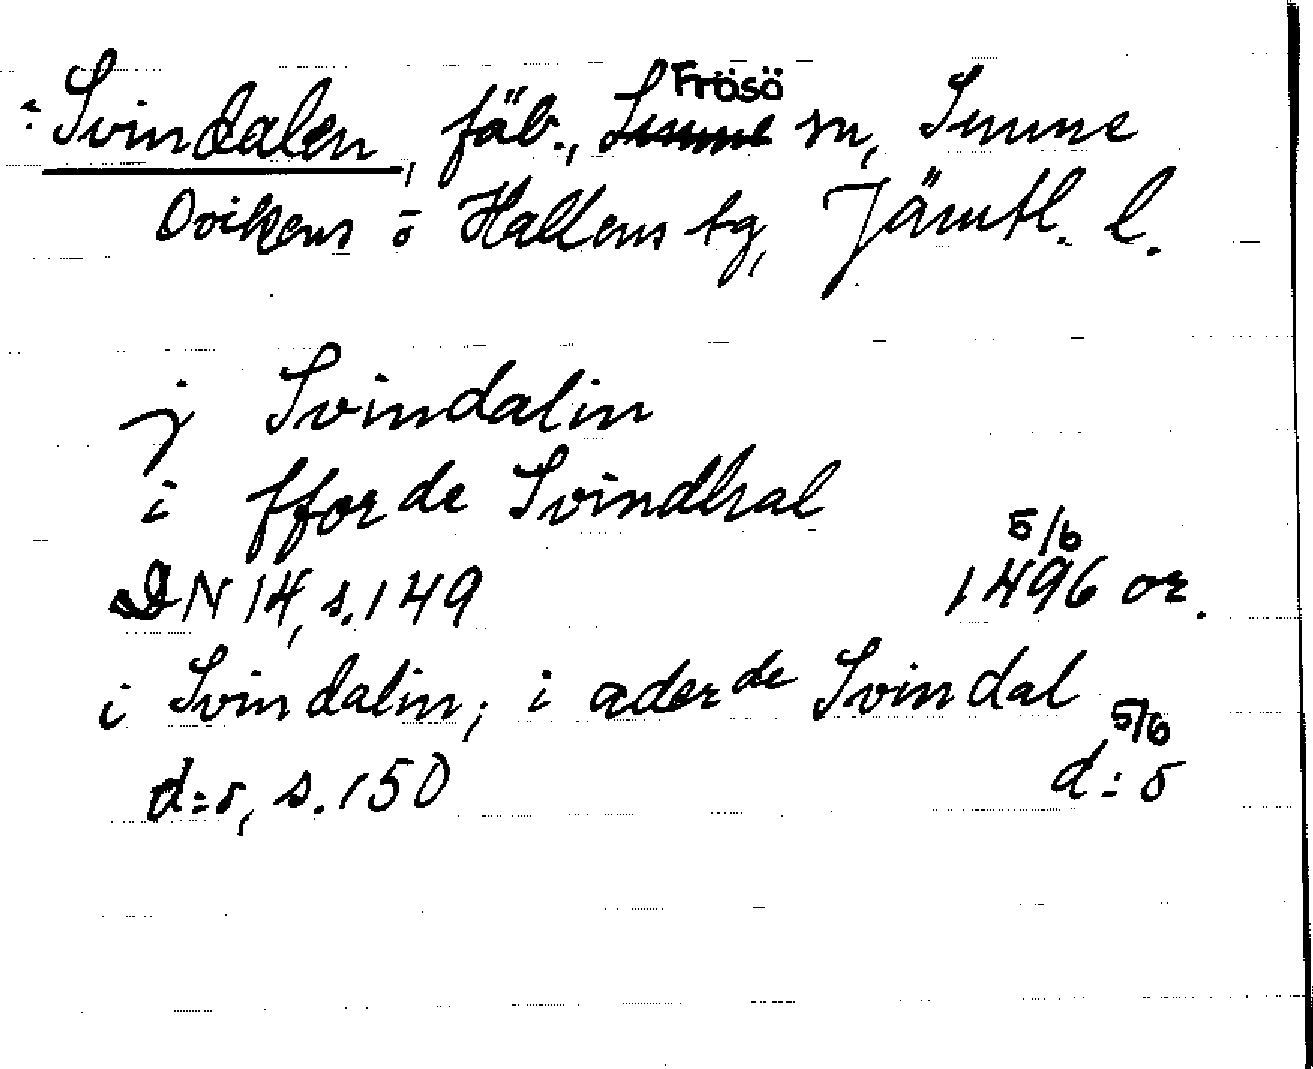 : Svindalen, fäb., Sunne Frösö sn, Sunne
Ovikens o Hallens tg, Jämtl. l.
j Svindalin
i fforde Svindhal
5/6
DN 14, s. 149 1496 or.
i Svindalin; i aderde Svindal
5/6
d:o, s. 150 d:o